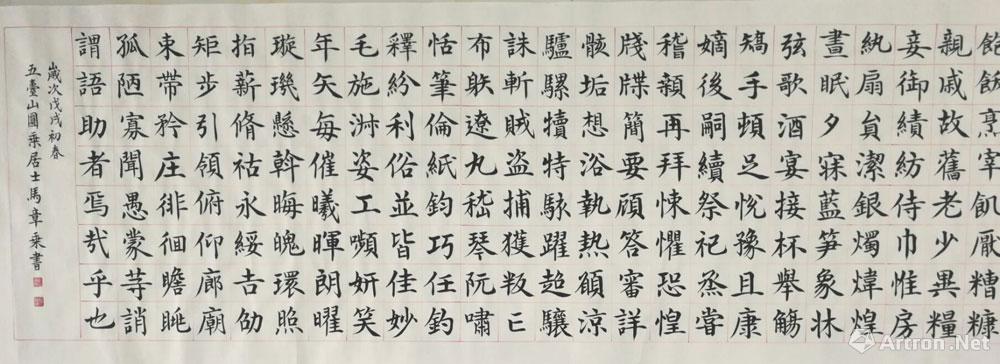 飽飫烹宰飢厭糟糠
親戚故舊老少異糧
妾御績紡侍巾惟房
紈扇員潔銀燭煒煌
晝眠夕寐藍笋象牀
弦歌酒宴接杯舉觴
矯手頓足悅豫且康
嫡後嗣續祭祀蒸嘗
稽顙再拜悚懼恐惶
牋牒簡要顧答審詳
骸垢想浴執熱願涼
驢騾犢特駭躍超驤
誅斬賊盜捕獲叛亡
布射遼丸嵇琴阮嘯
恬筆倫紙鈞巧任釣
釋紛利俗並皆佳妙
毛施淑姿工嚬妍笑
年矢每催曦暉朗曜
璇璣懸斡晦魄環照
指薪脩祜永綏吉劭
矩步引領俯仰廊廟
束帶矜庄徘徊瞻眺
孤陋寡聞愚蒙等誚
謂語助者焉哉乎也
歲次戊戌初春
五臺山圓乘居士馬章乘書
Artron.Net